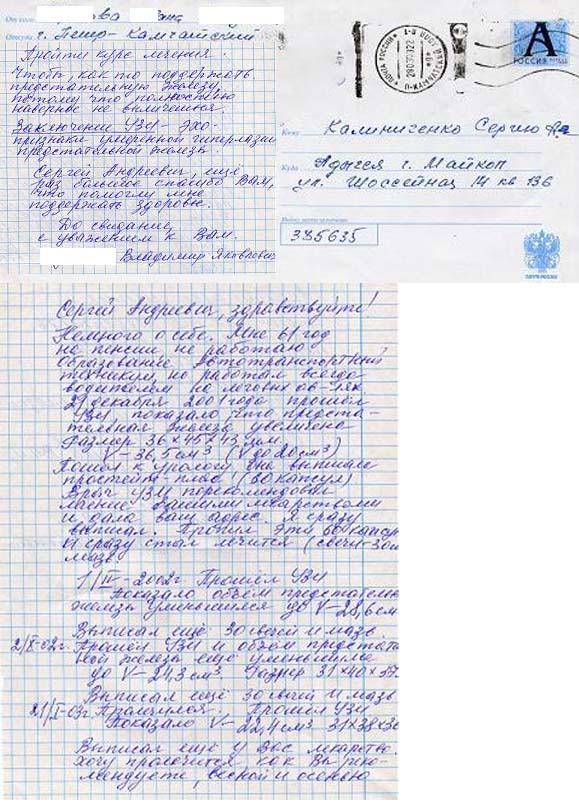 От кого
ова
Откуда г. Петр-Камчатский
Пройти курс лечения.
Чтобы как то поддержать
предстательную железу,
потому что полностью
наверное не вылечишь
Заключение УЗИ - Эхо-
признаки умеренной гиперплазии
предстательной железы.
Сергей Андреевич, ещё
раз большое спасибо Вам,
что помогли мне
поддержать здоровье.
До свидание
с уважением к Вам.
Владимир Яковлевич
ПОЧТА РОССИИ
А
РОССИЯ
Кому Калиниченко Сергею
Куда Адыгея г. Майкоп
ул. Шоссейная 14 кв 136
385635
ПОЧТА РОССИИ
Сергей Андреевич, здравствуйте!
Немного о себе. Мне 61 год
на пенсии не работаю
Образование Автотранспортный
техникум, но работал всегда
водителем на легковых
21 декабря 2001 года прошёл
УЗИ, показало что предста-
тельная железа увеличена
Размер 36х45х43
V-36,5 см³ (V до 20 см³)
Пошёл к урологу она выписала
простейт-плас (60 капсул)
Врач УЗИ порекомендовал
лечение Вашими лекарствами
и дала ваш адрес. Я сразу
выписал. Пропил эту 60 капсул
И сразу стал лечится (свечи-30
мазь
1/IV-2002г. Прошёл УЗИ
Показало объём предстательн
железы уменьшился до V-28,6 см
Выписал ещё 30 свечей и мазь.
2/X-02г. Прошёл УЗИ и объём предстате
ной железы ещё уменьшился
до V-24,3 см³ Размер 31х40х37
Выписал ещё 30 свечей и мазь
21/I-03г. Пролечился. Прошёл УЗИ
Показало V-22,4 см³ 31х38х36
Выписал ещё у Вас лекарство.
хочу пролечится как Вы реко-
мендуете, весной и осенью